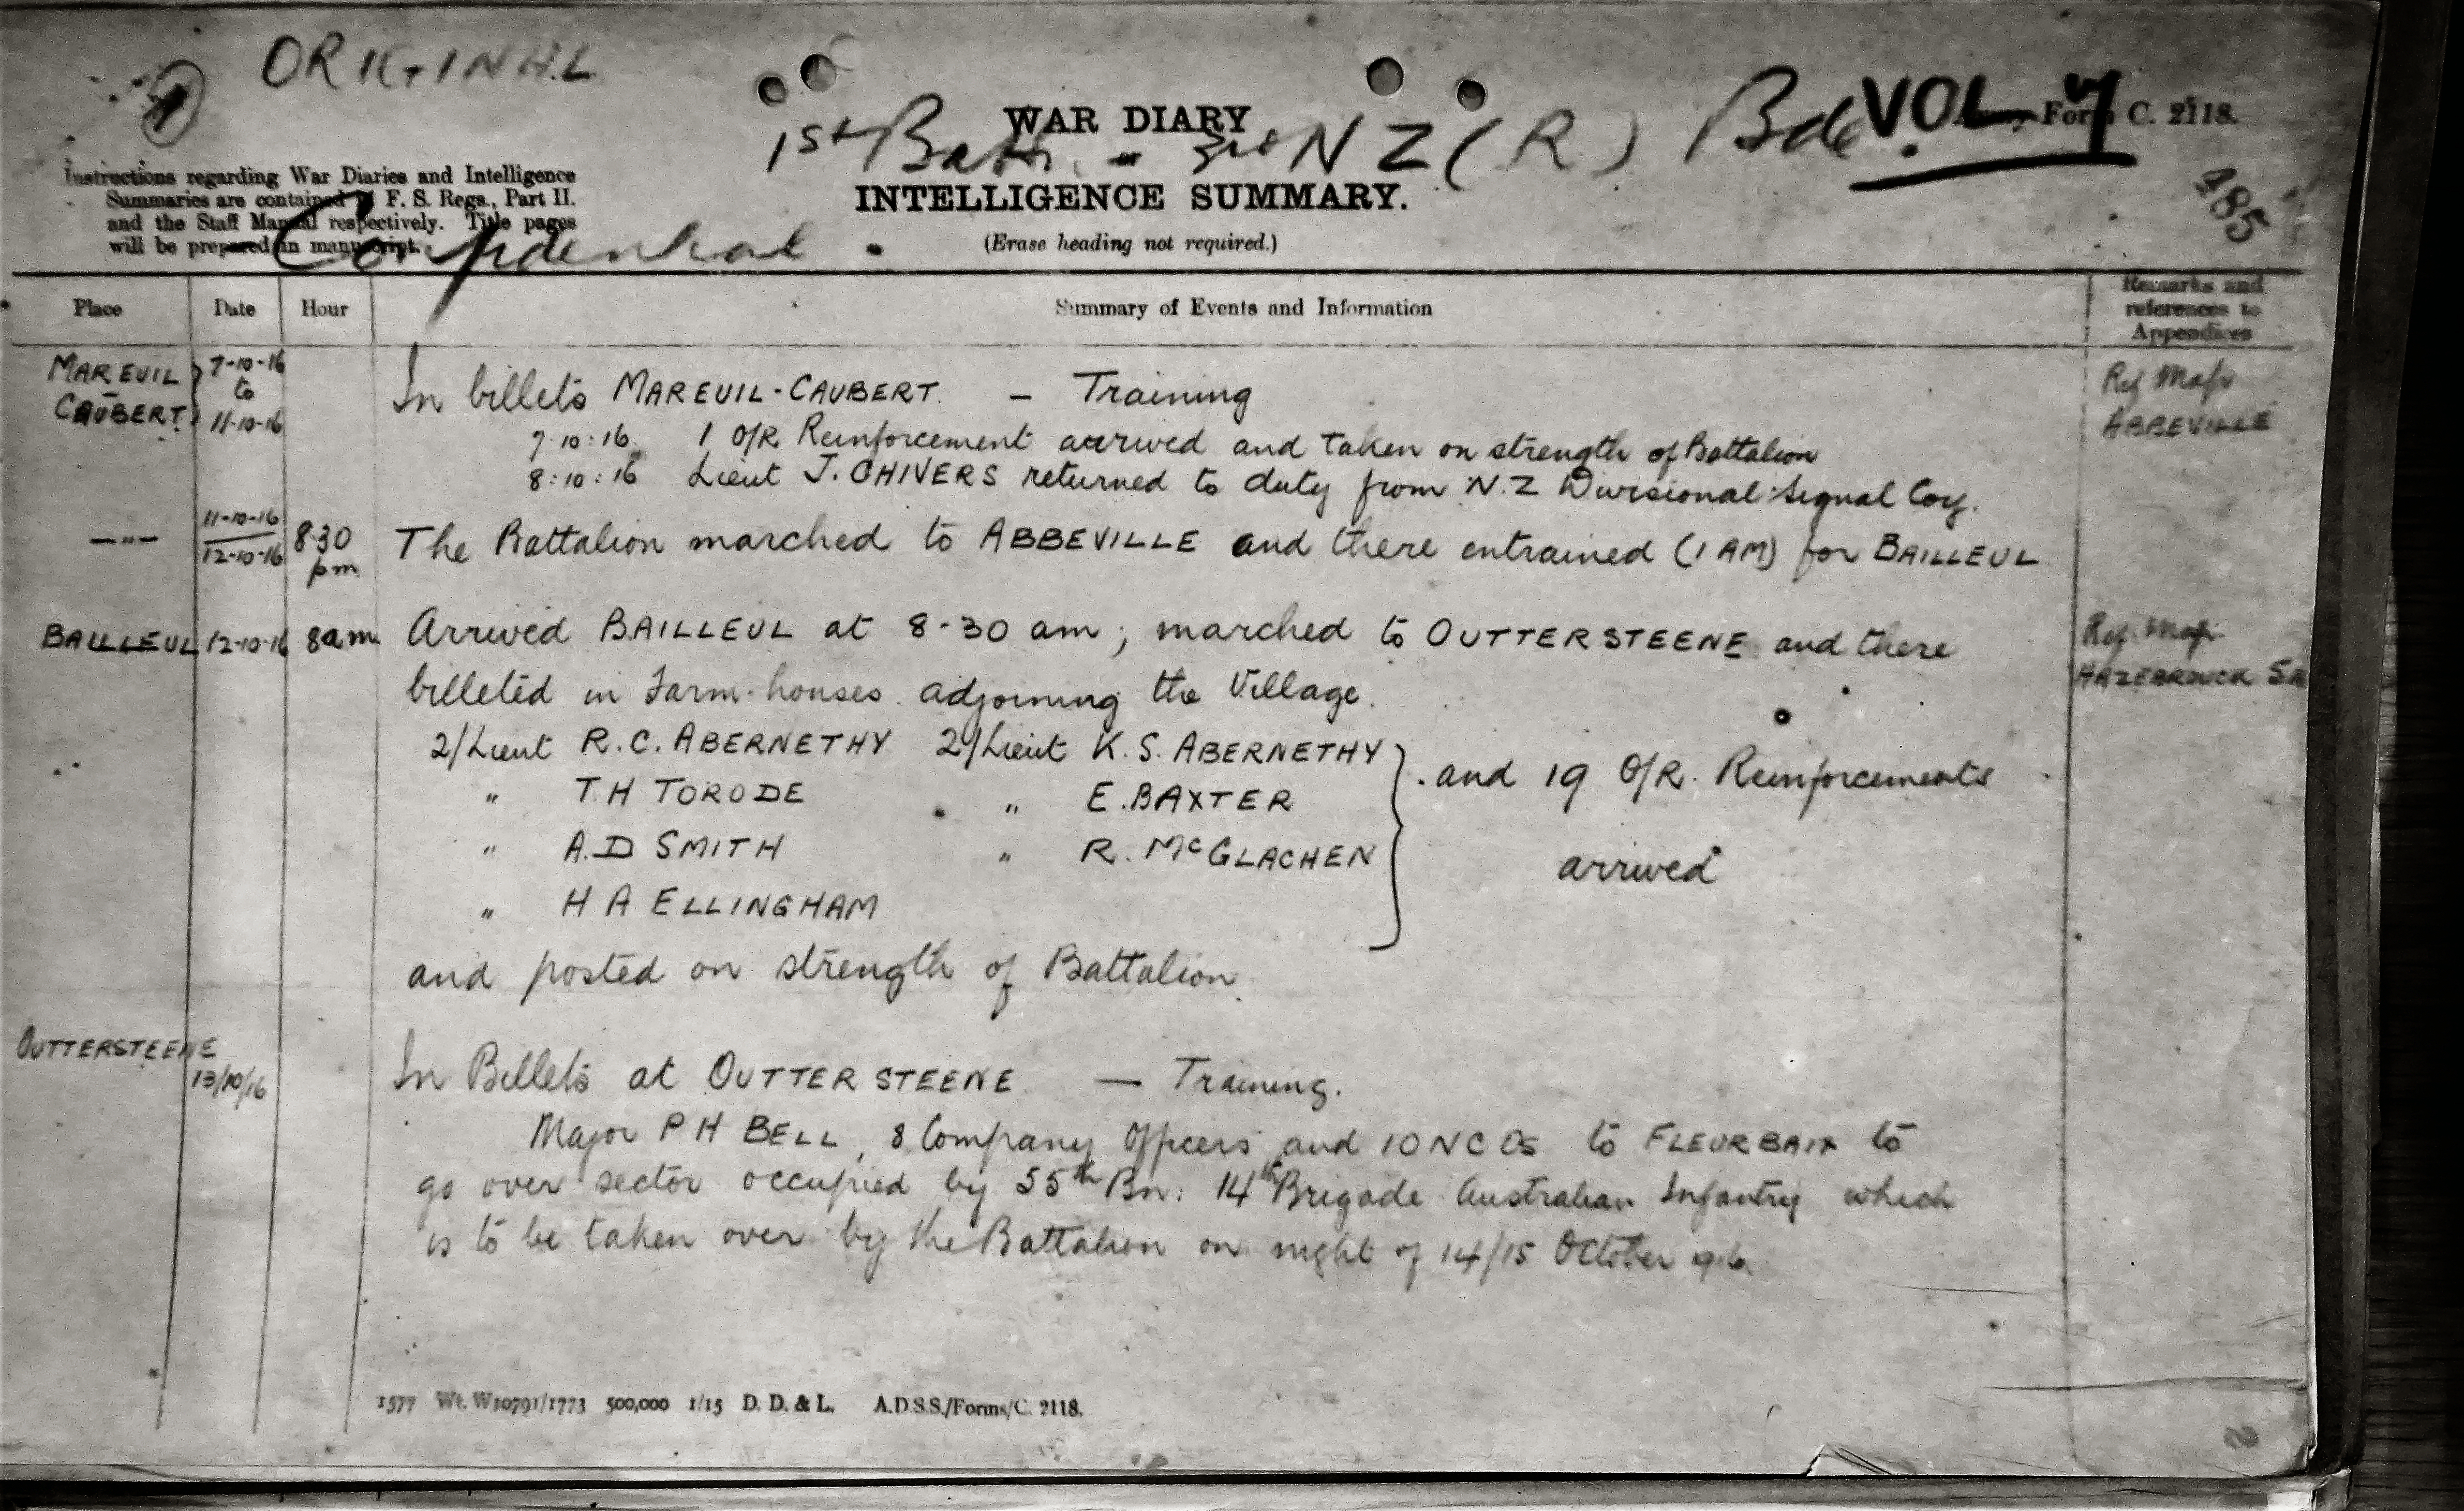 ORIGINAL
1
WAR DIARY
1st Battn. 3rd NZ (R) Bde.
VOL 7
Army Form C. 2118.
INTELLIGENCE SUMMARY.
(Erase heading not required.)
485
Instructions regarding War Diaries and Intelligence
Summaries are contained in F. S. Regs., Part II.
and the Staff Manual respectively. Title pages
will be prepared in manuscript.
Confidential.
Place Date Hour Summary of Events and Information Remarks and references to Appendices
MAREUIL - CAUBERT 7-10-16 to 11-10-16 In billets MAREUIL-CAUBERT. — Training Ref Map ABBEVILLE
7.10.16. 1 O/R Reinforcement arrived and taken on strength of Battalion
8:10:16 Lieut J. CHIVERS returned to duty from N.Z Divisional Signal Coy.
—"— 11-10-16 / 12-10-16 8.30 pm The Battalion marched to ABBEVILLE and there entrained (1 AM) for BAILLEUL
BAILLEUL 12-10-16 8am Arrived BAILLEUL at 8-30 am; marched to OUTTERSTEENE and there Ref. Map
billeted in Farm-houses adjoining the Village. HAZEBROUCK 5A
2/Lieut R.C. ABERNETHY 2/Lieut K.S. ABERNETHY
" T.H TORODE " E. BAXTER and 19 O/R. Reinforcements
" A.D SMITH " R. McGLACHEN arrived
" H A ELLINGHAM
and posted on strength of Battalion.
OUTTERSTEENE
13/10/16 In Billets at OUTTERSTEENE — Training.
Major P H BELL, 8 Company Officers and 10 NCOs to FLEURBAIX to
go over sector occupied by 55th Bn. 14th Brigade Australian Infantry which
is to be taken over by the Battalion on night of 14/15 October 1916.
1577 Wt. W10791/1773 500,000 1/15 D. D. & L. A.D.S.S./Forms/C. 2118.
2